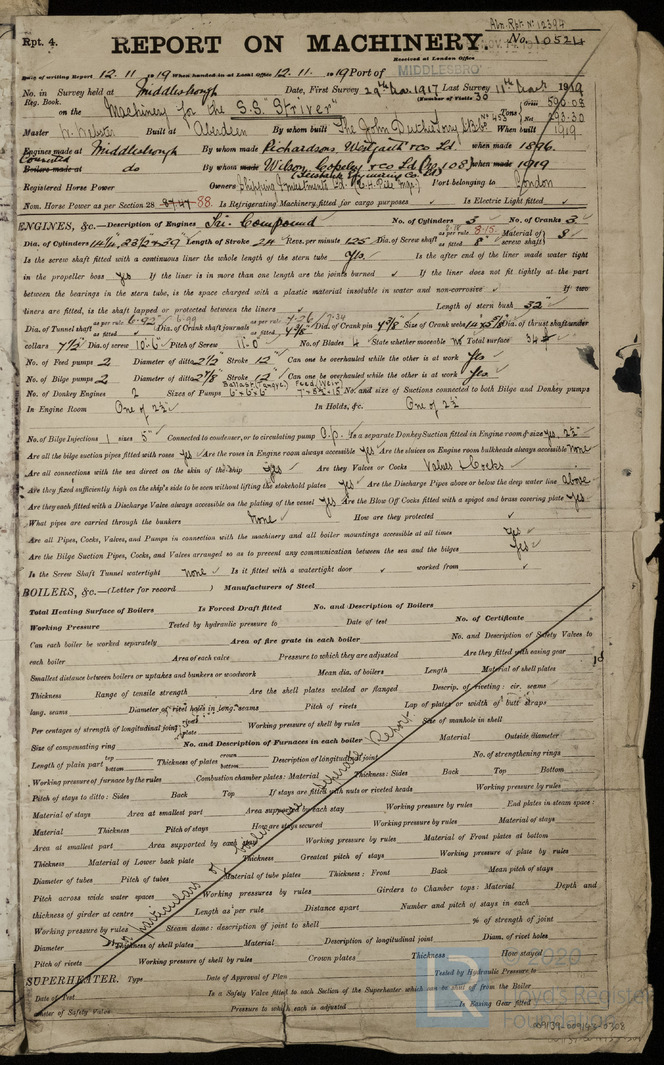 Rpt. 4.
REPORT ON MACHINERY.
No. 10524
Received at London Office
Date of writing Report 12. 11. 1919 When handed in at Local Office 12. 11. 1919 Port of MIDDLESBRO
No. in Survey held at Middlesbrough Date, First Survey 1917 Last Survey 11th 1919
Reg. Book. (Number of Visits 30
on the Machinery for the S.S. "Striver" Tons Gross 590.08 Net 293.30
Master W. Webster Built at Aberdeen By whom built The John Duthie When built 1919
Engines made at Middlesbrough By whom made Richardsons, Westgarth & Co Ld. when made 1896
Boilers made at do By whom made when made 1919
Registered Horse Power Owners Shipping Investments Ld. Port belonging to London
Nom. Horse Power as per Section 28 88. Is Refrigerating Machinery fitted for cargo purposes Is Electric Light fitted
ENGINES, &c.—Description of Engines Tri-Compound No. of Cylinders 3 No. of Cranks 3
Dia. of Cylinders Length of Stroke 24 Revs. per minute 125 Dia. of Screw shaft as per rule 8.15 as fitted 8" Material of screw shaft
Is the screw shaft fitted with a continuous liner the whole length of the stern tube Yes. Is the after end of the liner made water tight
in the propeller boss yes If the liner is in more than one length are the joints burned If the liner does not fit tightly at the part
between the bearings in the stern tube, is the space charged with a plastic material insoluble in water and non-corrosive If two
liners are fitted, is the shaft lapped or protected between the liners Length of stern bush 32"
Dia. of Tunnel shaft as per rule as fitted Dia. of Crank shaft journals as per rule as fitted Dia. of Crank pin 7 3/8 Size of Crank webs Dia. of thrust shaft under
collars 7 1/2 Dia. of screw 10-6 Pitch of Screw 11-0 No. of Blades 4 State whether moveable No Total surface
No. of Feed pumps 2 Diameter of ditto 2 1/2 Stroke 12" Can one be overhauled while the other is at work Yes
No. of Bilge pumps 2 Diameter of ditto 2 7/8 Stroke 12" Can one be overhauled while the other is at work Yes
No. of Donkey Engines 2 Sizes of Pumps 6"x6"x6" No. and size of Suctions connected to both Bilge and Donkey pumps
In Engine Room One of 2 1/2 In Holds, &c. One of 2 1/2
No. of Bilge Injections 1 sizes 5" Connected to condenser, or to circulating pump C.p. Is a separate Donkey Suction fitted in Engine room & size yes. 2 1/2
Are all the bilge suction pipes fitted with roses yes Are the roses in Engine room always accessible yes Are the sluices on Engine room bulkheads always accessible none
Are all connections with the sea direct on the skin of the ship Yes Are they Valves or Cocks Valves & Cocks
Are they fixed sufficiently high on the ship's side to be seen without lifting the stokehold plates yes Are the Discharge Pipes above or below the deep water line above
Are they each fitted with a Discharge Valve always accessible on the plating of the vessel yes Are the Blow Off Cocks fitted with a spigot and brass covering plate yes
What pipes are carried through the bunkers none How are they protected
Are all Pipes, Cocks, Valves, and Pumps in connection with the machinery and all boiler mountings accessible at all times Yes
Are the Bilge Suction Pipes, Cocks, and Valves arranged so as to prevent communication between the sea and the bilges Yes
Is the Screw Shaft Tunnel watertight none Is it fitted with a watertight door worked from
BOILERS, &c.—(Letter for record ) Manufacturers of Steel
Total Heating Surface of Boilers Is Forced Draft fitted No. and Description of Boilers
Working Pressure Tested by hydraulic pressure to Date of test No. of Certificate
Can each boiler be worked separately Area of fire grate in each boiler No. and Description of Safety Valves to
each boiler Area of each valve Pressure to which they are adjusted Are they fitted with easing gear
Smallest distance between boilers or uptakes and bunkers or woodwork Mean dia. of boilers Length Material of shell plates
Thickness Range of tensile strength Are the shell plates welded or flanged Descrip. of riveting: cir. seams
long. seams Diameter of rivet holes in long. seams Pitch of rivets Lap of plates or width of butt straps
Per centages of strength of longitudinal joint rivets plate Working pressure of shell by rules Size of manhole in shell
Size of compensating ring No. and Description of Furnaces in each boiler Material Outside diameter
Length of plain part top bottom Thickness of plates crown bottom Description of longitudinal joint No. of strengthening rings
Working pressure of furnace by the rules Combustion chamber plates: Material Thickness: Sides Back Top Bottom
Pitch of stays to ditto: Sides Back Top If stays are fitted with nuts or riveted heads Working pressure by rules
Material of stays Area at smallest part Area supported by each stay Working pressure by rules End plates in steam space:
Material Thickness Pitch of stays How are stays secured Working pressure by rules Material of stays
Area at smallest part Area supported by each stay Working pressure by rules Material of Front plates at bottom
Thickness Material of Lower back plate Thickness Greatest pitch of stays Working pressure of plate by rules
Diameter of tubes Pitch of tubes Material of tube plates Thickness: Front Back Mean pitch of stays
Pitch across wide water spaces Working pressures by rules Girders to Chamber tops: Material Depth and
thickness of girder at centre Length as per rule Distance apart Number and pitch of stays in each
Working pressure by rules Steam dome: description of joint to shell % of strength of joint
Diameter Thickness of shell plates Material Description of longitudinal joint Diam. of rivet holes
Pitch of rivets Working pressure of shell by rules Crown plates Thickness How stayed
SUPERHEATER. Type Date of Approval of Plan Tested by Hydraulic Pressure to
Date of Test Is a Safety Valve fitted to each Section of the Superheater which can be shut off from the Boiler
Diameter of Safety Valve Pressure to which each is adjusted Is Easing Gear fitted
For particulars of boilers see separate Report
© 2020
Lloyd's Register
Foundation